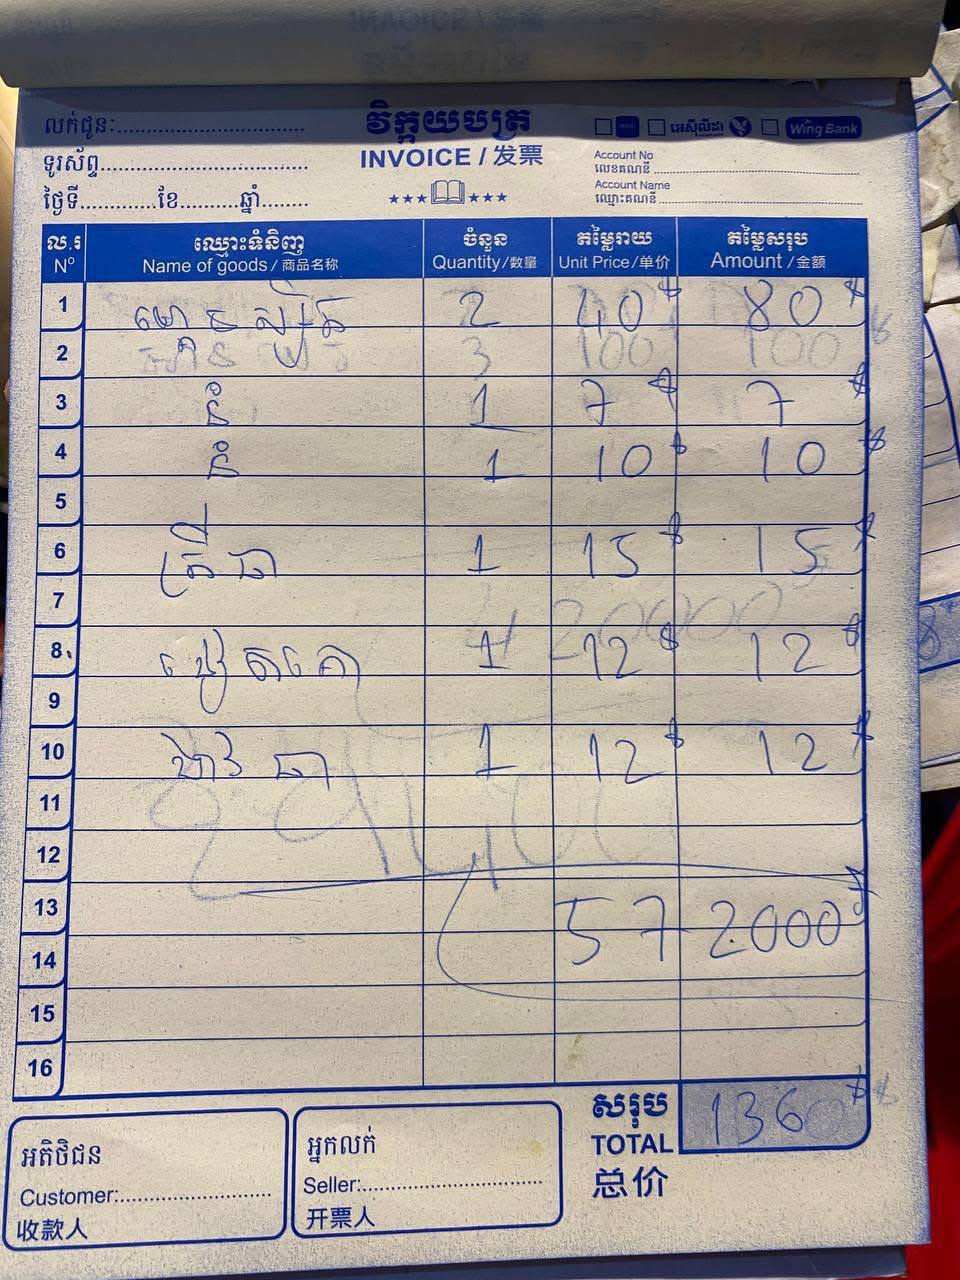 លក់ជូនៈ
វិក្កយបត្រ
អេស៊ីលីដា Wing Bank
ទូរស័ព្ទ
INVOICE / 发票
Account No
លេខគណនី
ថ្ងៃទី ខែ ឆ្នាំ
Account Name
ឈ្មោះគណនី
ល.រ ឈ្មោះទំនិញ ចំនួន តម្លៃរាយ តម្លៃសរុប
Nº Name of goods / 商品名称 Quantity / 数量 Unit Price / 单价 Amount / 金额
1 មាន់ 2 40$ 80$
2 3 100 100
3 នំ 1 7$ 7$
4 នំ 1 10$ 10$
5
6 ត្រី 1 15$ 15$
7 420000
8 1 12$ 12$
9
10 1 12$ 12$
11
12
13 572000
14
15
16
សរុប
TOTAL 136$
总价
អតិថិជន
Customer:
收款人
អ្នកលក់
Seller:
开票人